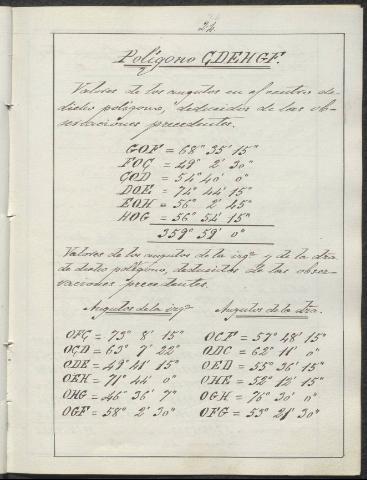 24.
Polígono CDEHGF.
Valores de los angulos en el centro de
dicho polígono, deducidos de las ob-
servaciones precedentes.
GOF = 68° 35' 15"
FOC = 49° 2' 30"
COD = 54° 40' 0"
DOE = 74° 44' 15"
EOH = 56° 2' 45"
HOG = 56° 54' 15"
359° 59' 0"
Valores de los angulos de la izqª y de la dra
de dicho polígono, deducidos de las obser-
vaciones precedentes.
Angulos de la izqª Angulos de la dra.
OFC = 73° 8' 15" OCF = 57° 48' 15"
OCD = 63° 7' 22" ODC = 62° 11' 0"
ODE = 49° 41' 15" OED = 55° 36' 15"
OEH = 71° 44' 0" OHE = 52° 12' 15"
OHG = 46° 36' 7" OGH = 76° 30' 0"
OGF = 58° 2' 30" OFG = 53° 21' 30"